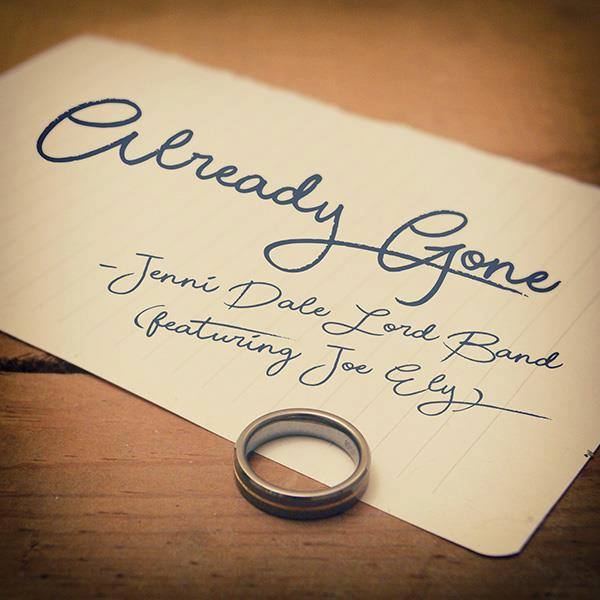 Already Gone
-Jenni Dale Lord Band
(featuring Joe Ely)